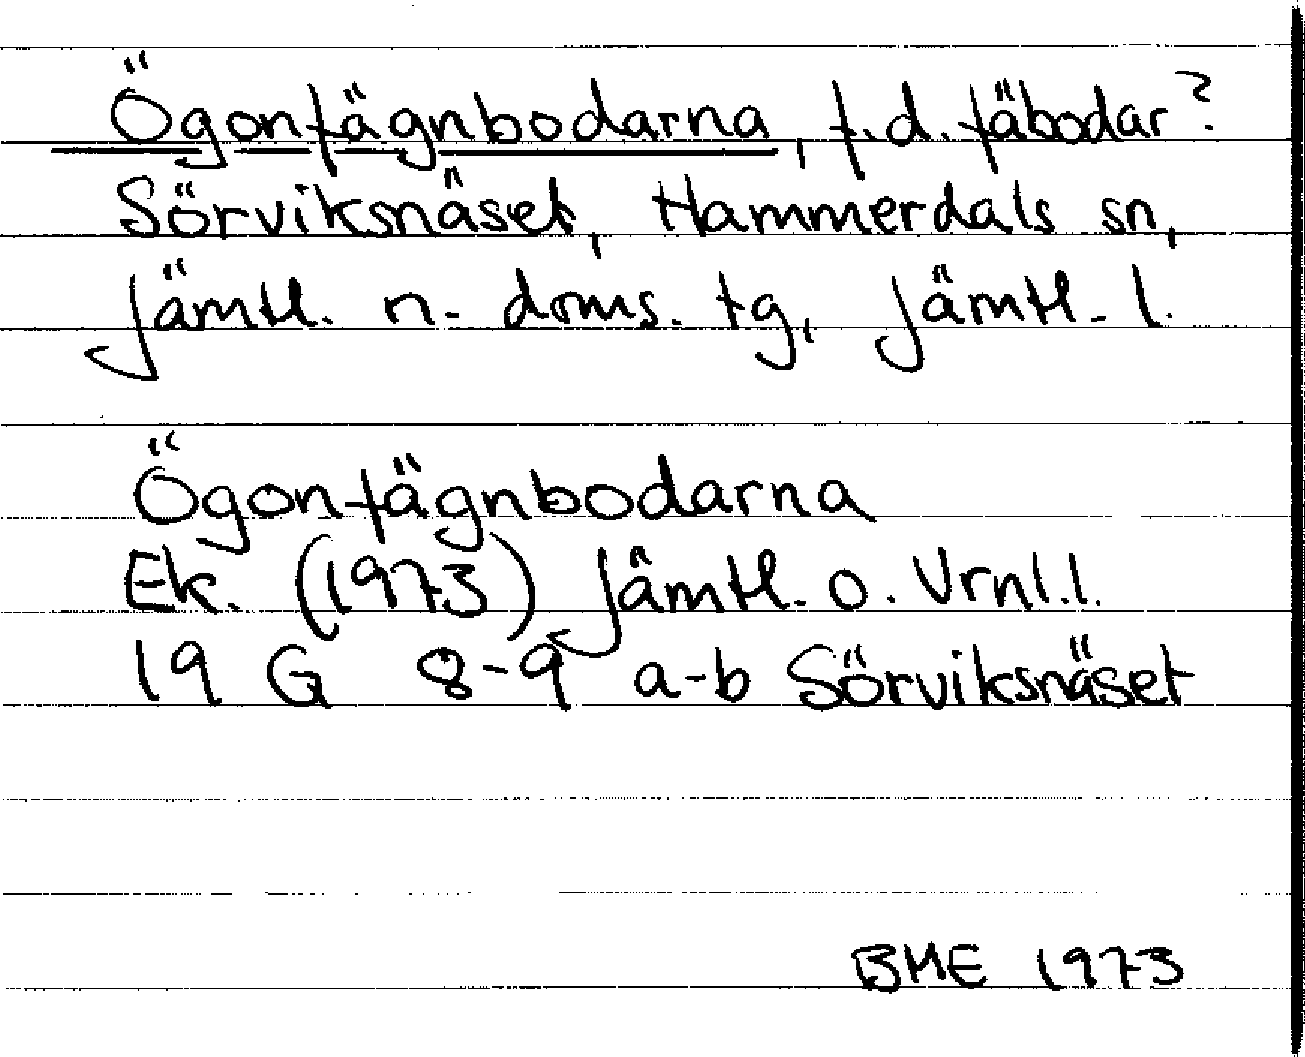 Ögonfägnbodarna, f.d. fäbodar?
Sörviksnäset, Hammerdals sn,
Jämtl. n. doms. tg, Jämtl. l.
Ögonfägnbodarna
Ek. (1973) Jämtl. o. Vrnl.l.
19 G 8-9 a-b Sörviksnäset
BME 1973